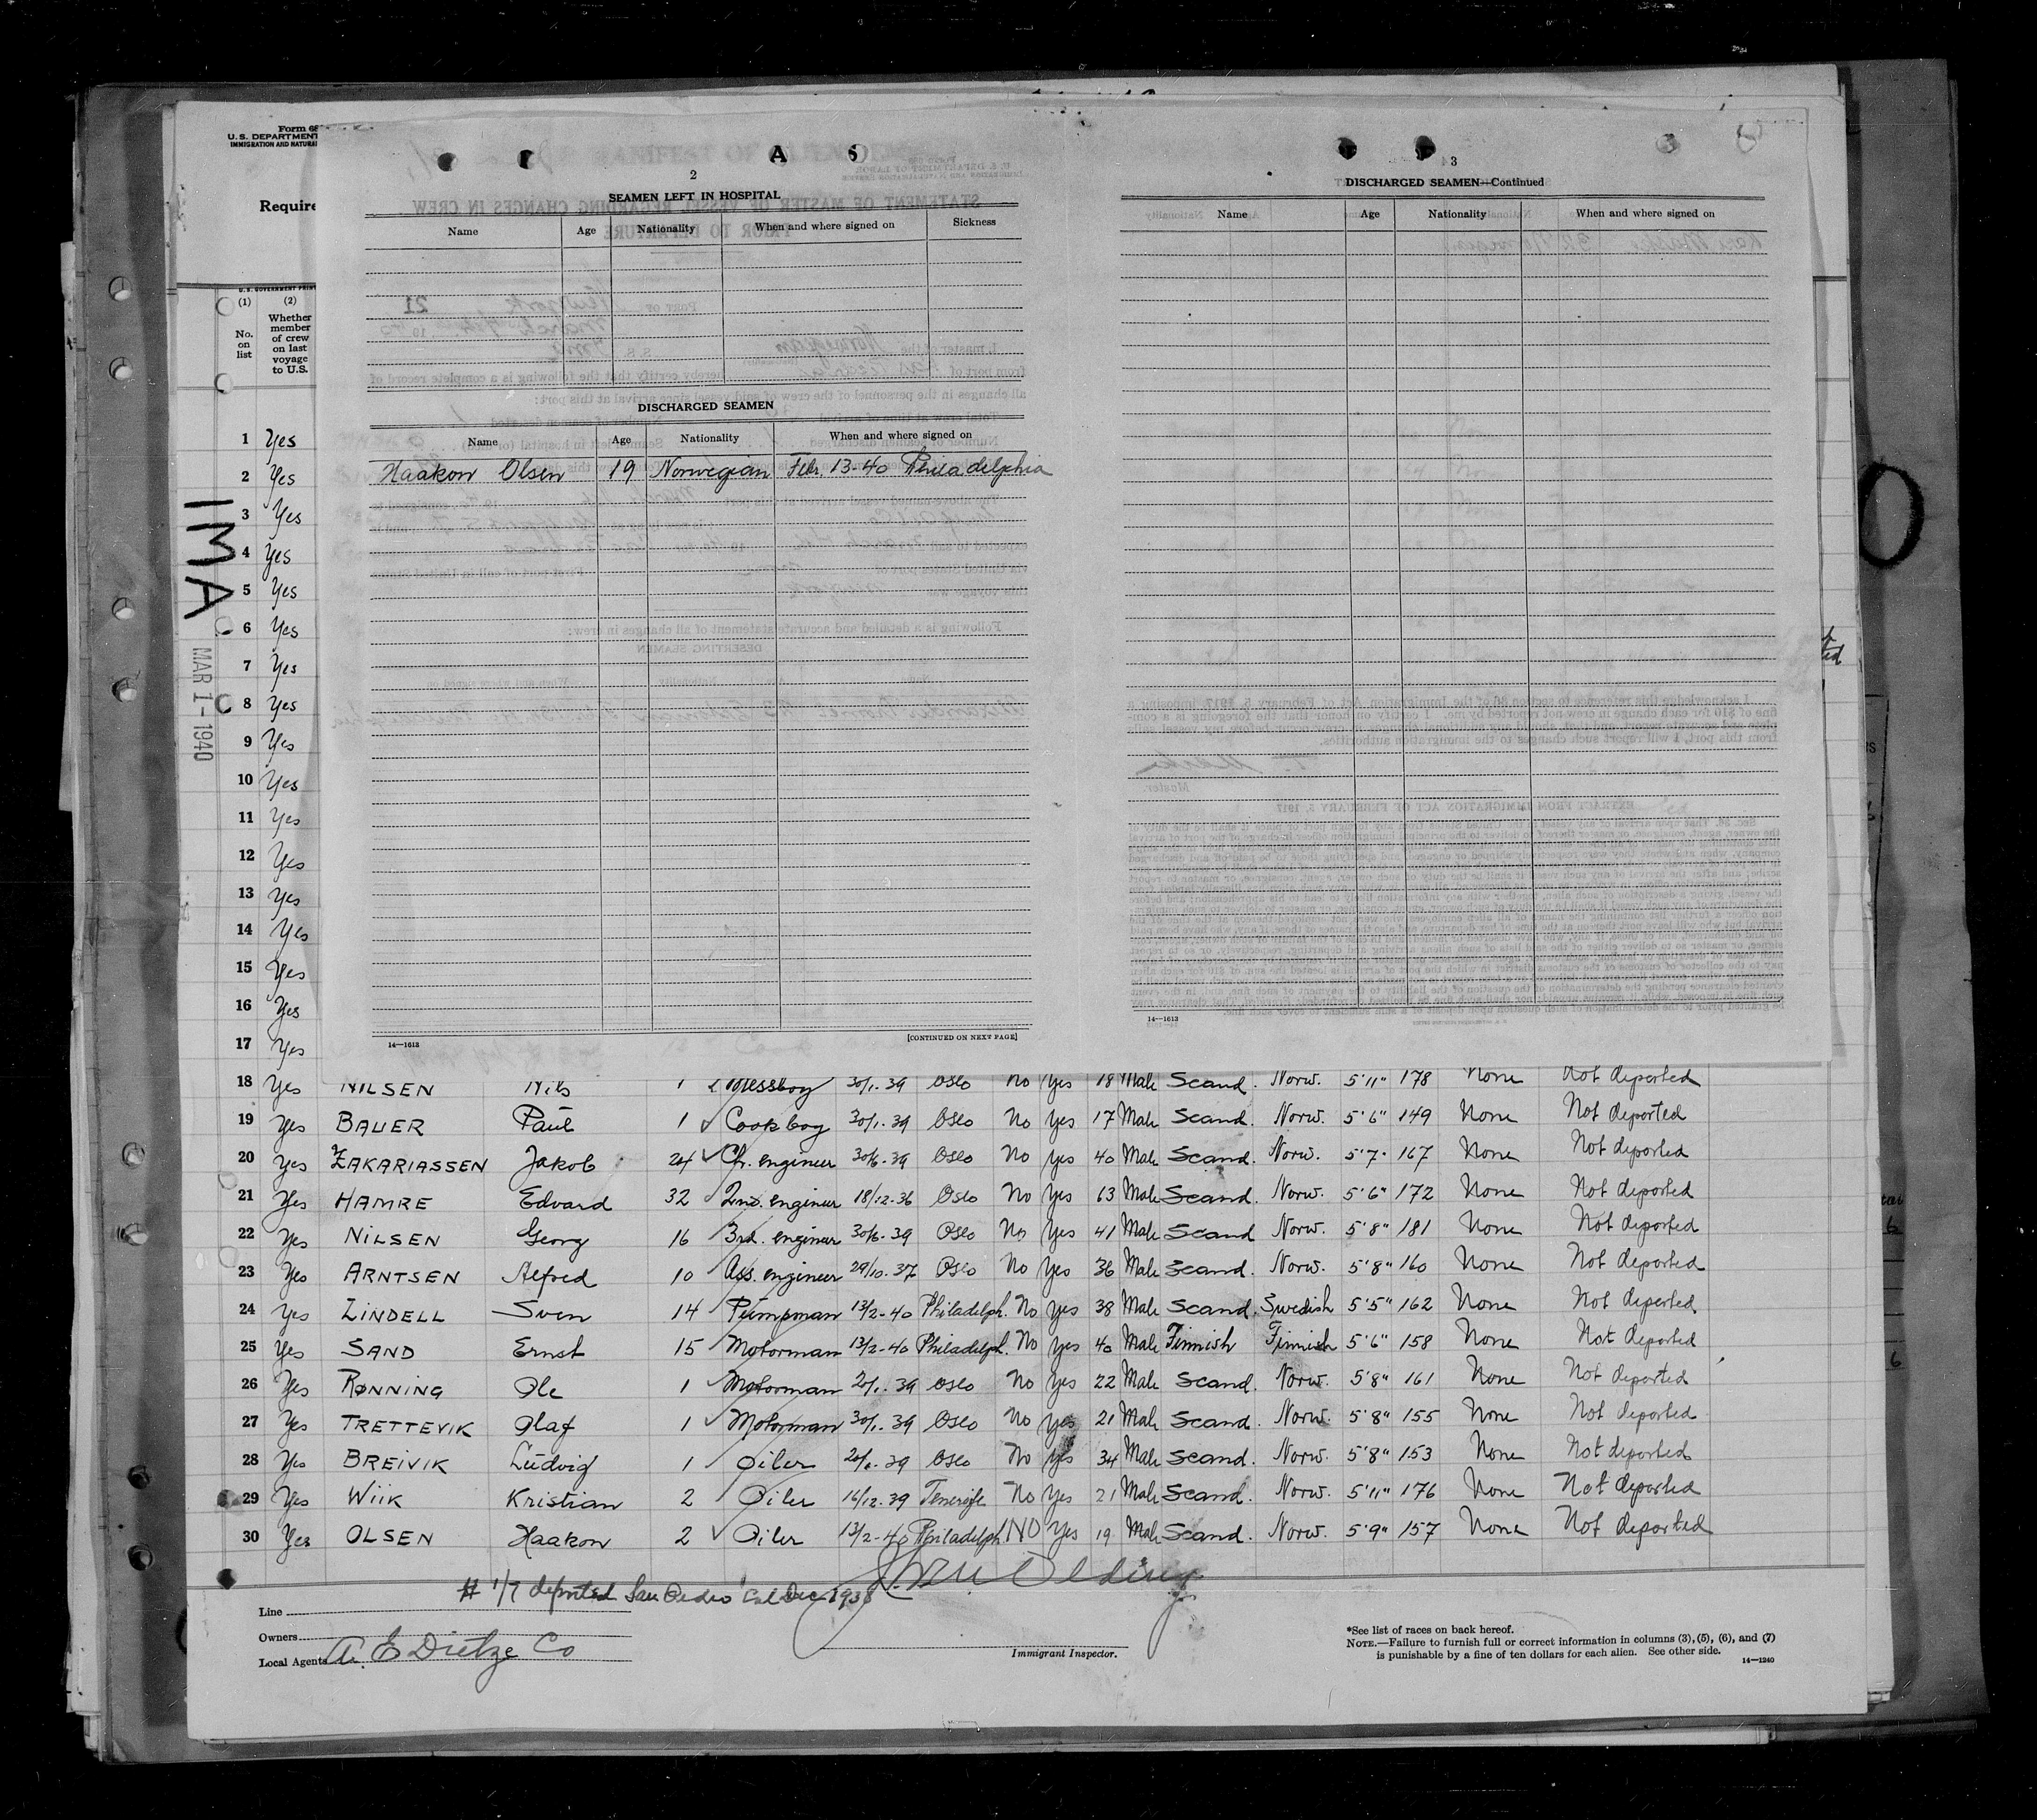 Form 68
U. S. DEPARTMENT
IMMIGRATION AND NATURAL
Require
U. S. GOVERNMENT PRIN
(1) (2)
No. on list
Whether member of crew on last voyage to U.S.
IMA
MAR 1 - 1940
A
2
SEAMEN LEFT IN HOSPITAL
Name Age Nationality When and where signed on Sickness
DISCHARGED SEAMEN
Name Age Nationality When and where signed on
Haakon Olsen 19 Norwegian Febr. 13-40 Philadelphia
14—1613 [CONTINUED ON NEXT PAGE]
3
DISCHARGED SEAMEN—Continued
Name Age Nationality When and where signed on
14—1613
1 Yes
2 Yes
3 Yes
4 Yes
5 Yes
6 Yes
7 Yes
8 Yes
9 Yes
10 Yes
11 Yes
12 Yes
13 Yes
14 Yes
15 Yes
16 Yes
17 Yes
18 Yes NILSEN Nils 1 Messboy 30/1-39 Oslo No Yes 18 Male Scand. Norw. 5'11" 178 None Not deported
19 Yes BAUER Paul 1 Cooksboy 30/1-39 Oslo No Yes 17 Male Scand. Norw. 5'6" 149 None Not deported
20 Yes ZAKARIASSEN Jakob 24 Ch. engineer 30/6-39 Oslo No Yes 40 Male Scand. Norw. 5'7" 167 None Not deported
21 Yes HAMRE Edvard 32 2nd. engineer 18/12-36 Oslo No Yes 63 Male Scand. Norw. 5'6" 172 None Not deported
22 Yes NILSEN Georg 16 3rd. engineer 30/6-39 Oslo No Yes 41 Male Scand Norw. 5'8" 181 None Not deported
23 Yes ARNTSEN Alfred 10 Ass. engineer 29/10-37 Oslo No Yes 36 Male Scand. Norw. 5'8" 160 None Not deported
24 Yes LINDELL Sven 14 Pumpman 13/2-40 Philadelph. No Yes 38 Male Scand. Swedish 5'5" 162 None Not deported
25 Yes SAND Ernst 15 Motorman 13/2-40 Philadelph. No Yes 40 Male Finnish Finnish 5'6" 158 None Not deported
26 Yes RØNNING Ole 1 Motorman 20/1-39 Oslo No Yes 22 Male Scand. Norw. 5'8" 161 None Not deported
27 Yes TRETTEVIK Olaf 1 Motorman 30/1-39 Oslo No Yes 21 Male Scand. Norw. 5'8" 155 None Not deported
28 Yes BREIVIK Ludvig 1 Oiler Oslo No Yes 34 Male Scand. Norw. 5'8" 153 None Not deported
29 Yes WIIK Kristian 2 Oiler 16/12-39 Tenerife No Yes 21 Male Scand. Norw. 5'11" 176 None Not deported
30 Yes OLSEN Haakon 2 Oiler 13/2-40 Philadelph NO Yes 19 Male Scand. Norw. 5'9" 157 None Not deported
# 1/7 deported San Pedro Cal Dec 1938
Line
Owners
Local Agents A. E Dietze Co
Immigrant Inspector.
*See list of races on back hereof.
NOTE.—Failure to furnish full or correct information in columns (3), (5), (6), and (7)
is punishable by a fine of ten dollars for each alien. See other side.
14—1240